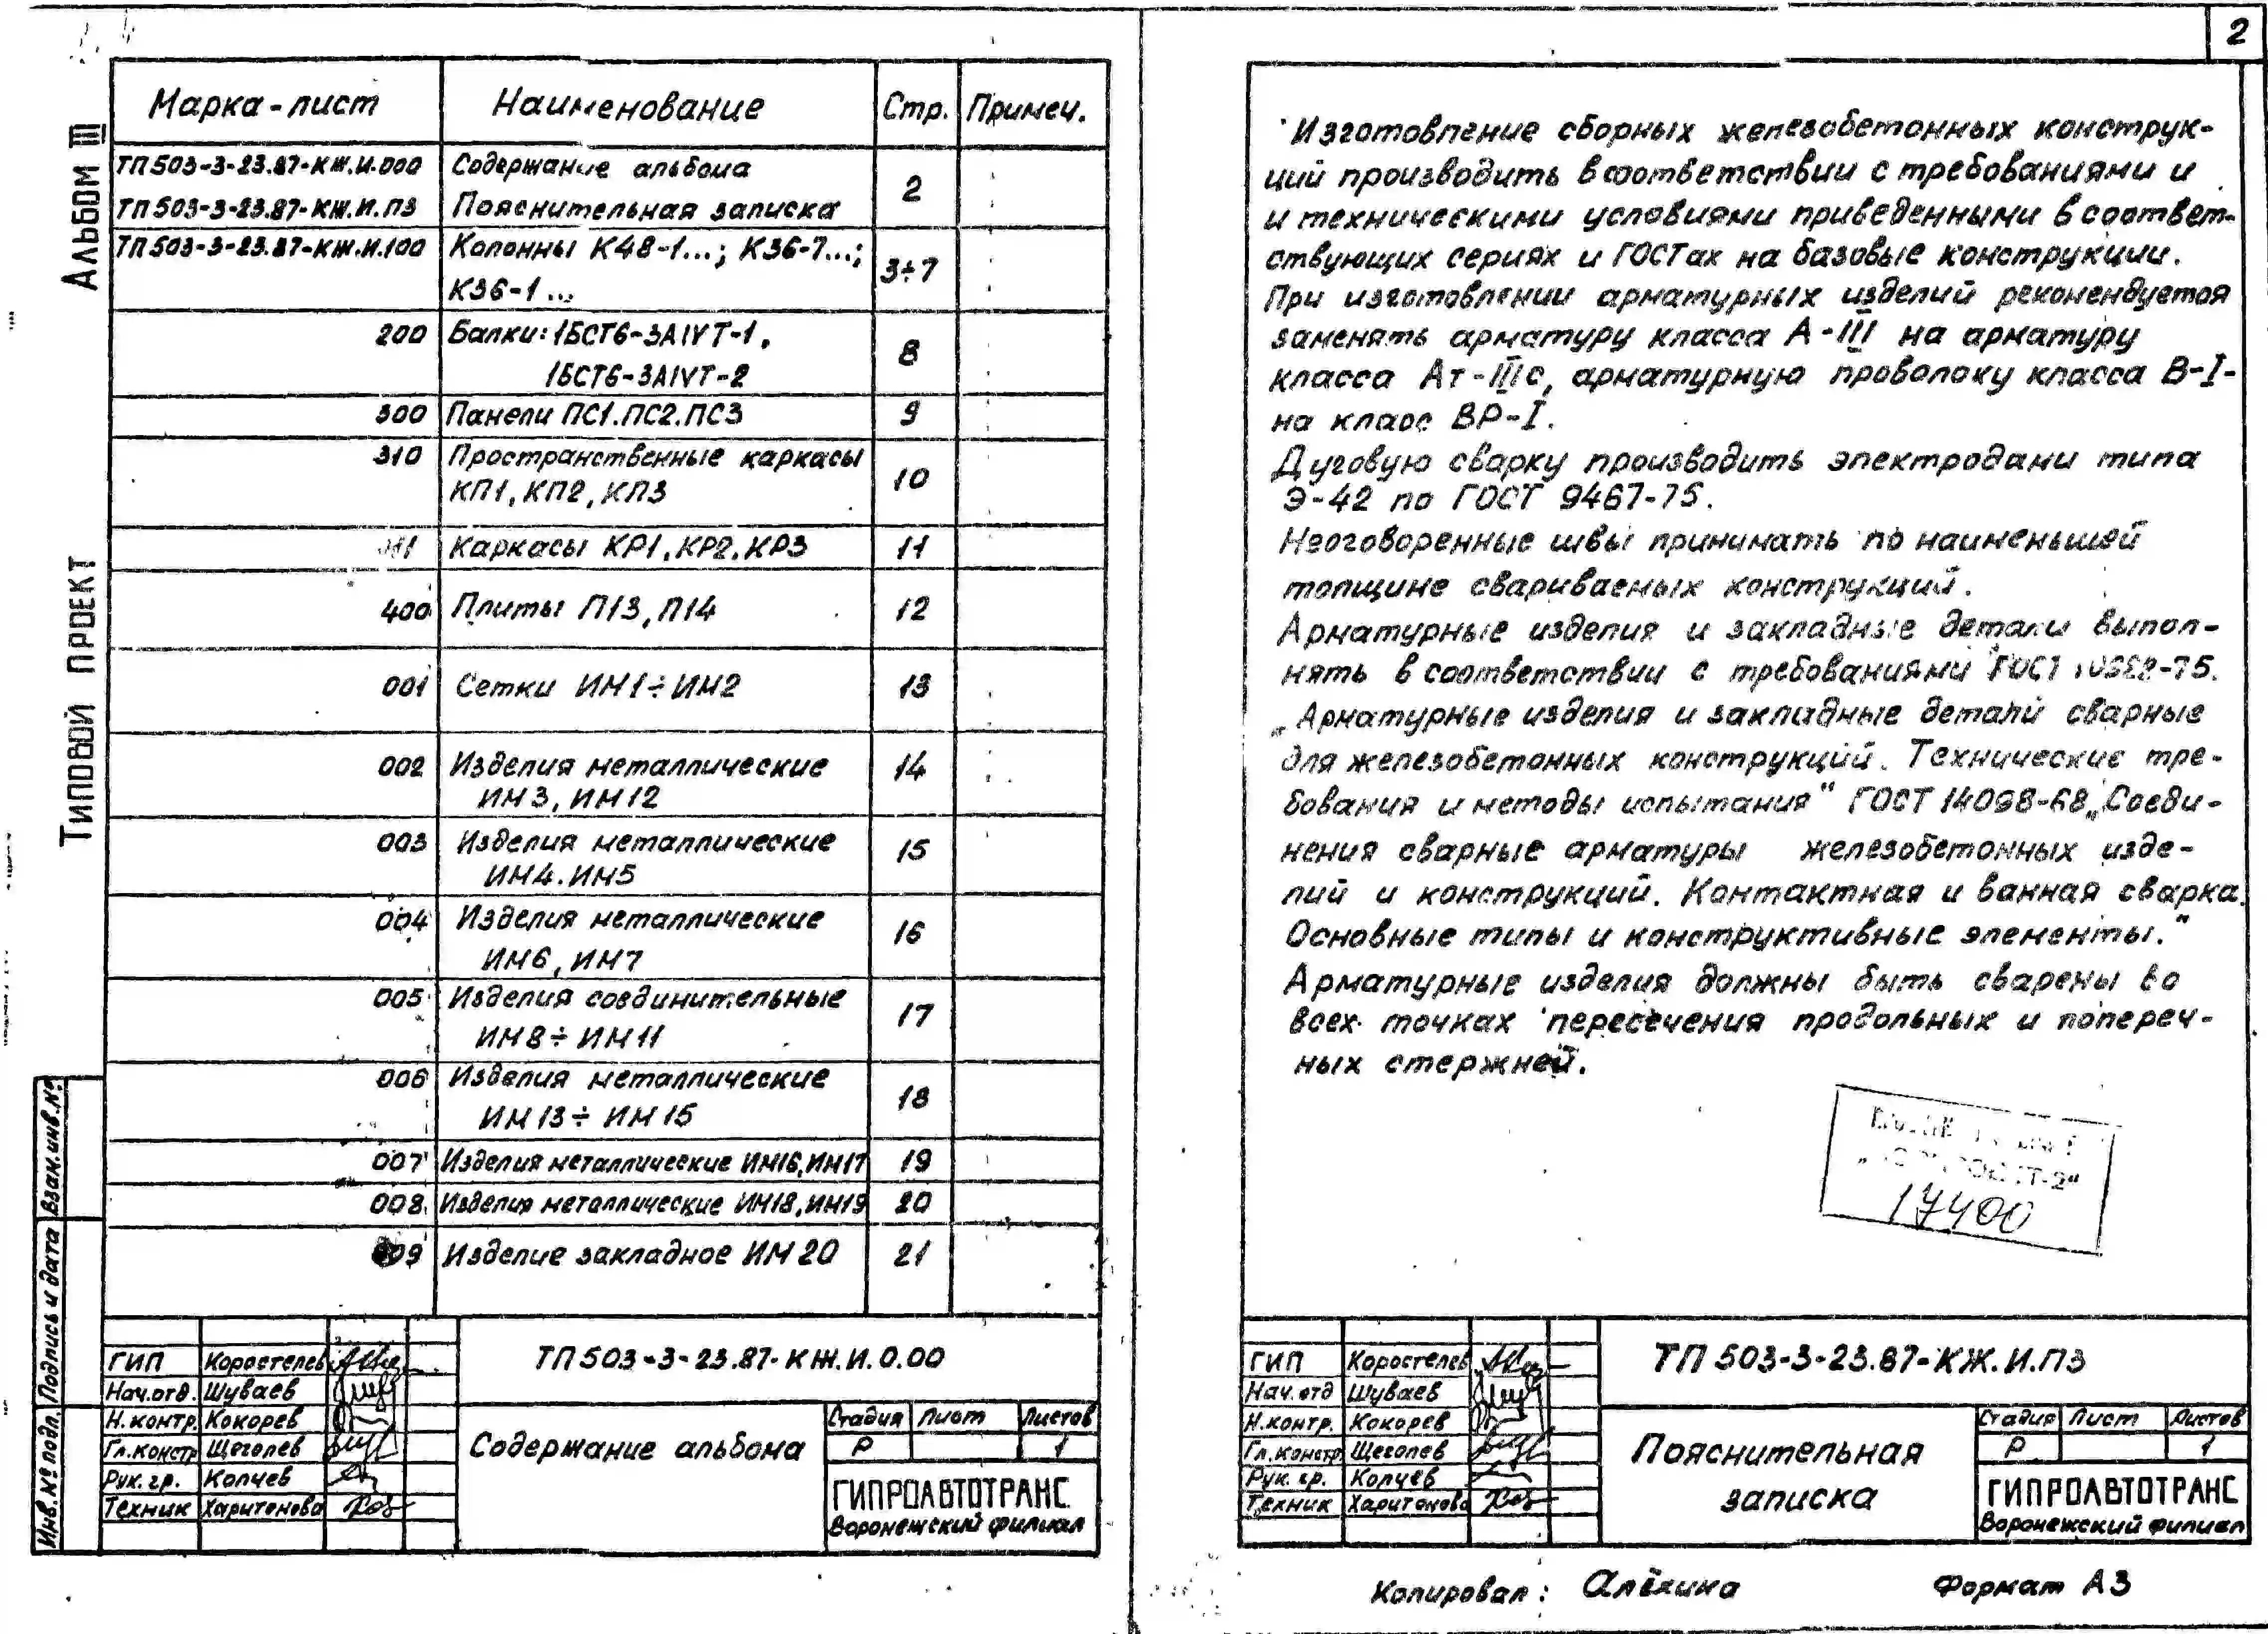 2
Альбом III
Типовой проект
Марка-лист Наименование Стр. Примеч.
ТП503-3-23.87-КЖ.И.000 Содержание альбома 2
ТП503-3-23.87-КЖ.И.ПЗ Пояснительная записка
ТП503-3-23.87-КЖ.И.100 Колонны К48-1...; К36-7...; 3÷7
К36-1...
200 Балки: 1БСТ6-3АIVТ-1, 8
1БСТ6-3АIVТ-2
300 Панели ПС1.ПС2.ПС3 9
310 Пространственные каркасы 10
КП1, КП2, КП3
Каркасы КР1, КР2. КР3 11
400 Плиты П13, П14 12
001 Сетки ИМ1÷ИМ2 13
002 Изделия металлические 14
ИМ3, ИМ12
003 Изделия металлические 15
ИМ4. ИМ5
004 Изделия металлические 16
ИМ6, ИМ7
005 Изделия соединительные 17
ИМ8÷ИМ11
006 Изделия металлические 18
ИМ13÷ИМ15
007 Изделия металлические ИМ16, ИМ17 19
008 Изделия металлические ИМ18, ИМ19 20
009 Изделие закладное ИМ20 21
Взам.инв.№
Подпись и дата
Инв.№ подл.
ГИП Коростелев
Нач.отд. Шуваев
Н.контр. Кокорев
Гл.констр Щеголев
Рук. гр. Колчев
Техник Харитонова
ТП503-3-23.87-КЖ.И.0.00
Содержание альбома
Стадия Лист Листов
Р 1
ГИПРОАВТОТРАНС
Воронежский филиал
Изготовление сборных железобетонных конструк-
ций производить в соответствии с требованиями и
и техническими условиями приведенными в соответ-
ствующих сериях и ГОСТах на базовые конструкции.
При изготовлении арматурных изделий рекомендуется
заменять арматуру класса А-III на арматуру
класса Ат-IIIс, арматурную проволоку класса В-I-
на класс ВР-I.
Дуговую сварку производить электродами типа
Э-42 по ГОСТ 9467-75.
Неоговоренные швы принимать по наименьшей
толщине свариваемых конструкций.
Арматурные изделия и закладные детали выпол-
нять в соответствии с требованиями ГОСТ
„Арматурные изделия и закладные детали сварные
для железобетонных конструкций. Технические тре-
бования и методы испытания" ГОСТ 14098-68 „Соеди-
нения сварные арматуры железобетонных изде-
лий и конструкций. Контактная и ванная сварка.
Основные типы и конструктивные элементы."
Арматурные изделия должны быть сварены во
всех точках пересечения продольных и попереч-
ных стержней.
17400
ГИП Коростелев
Нач.отд Шуваев
Н.контр. Кокорев
Гл.констр Щеголев
Рук. гр. Колчев
Техник Харитонова
ТП 503-3-23.87-КЖ.И.ПЗ
Пояснительная
записка
Стадия Лист Листов
Р 1
ГИПРОАВТОТРАНС
Воронежский филиал
Копировал: Алёхина Формат А3